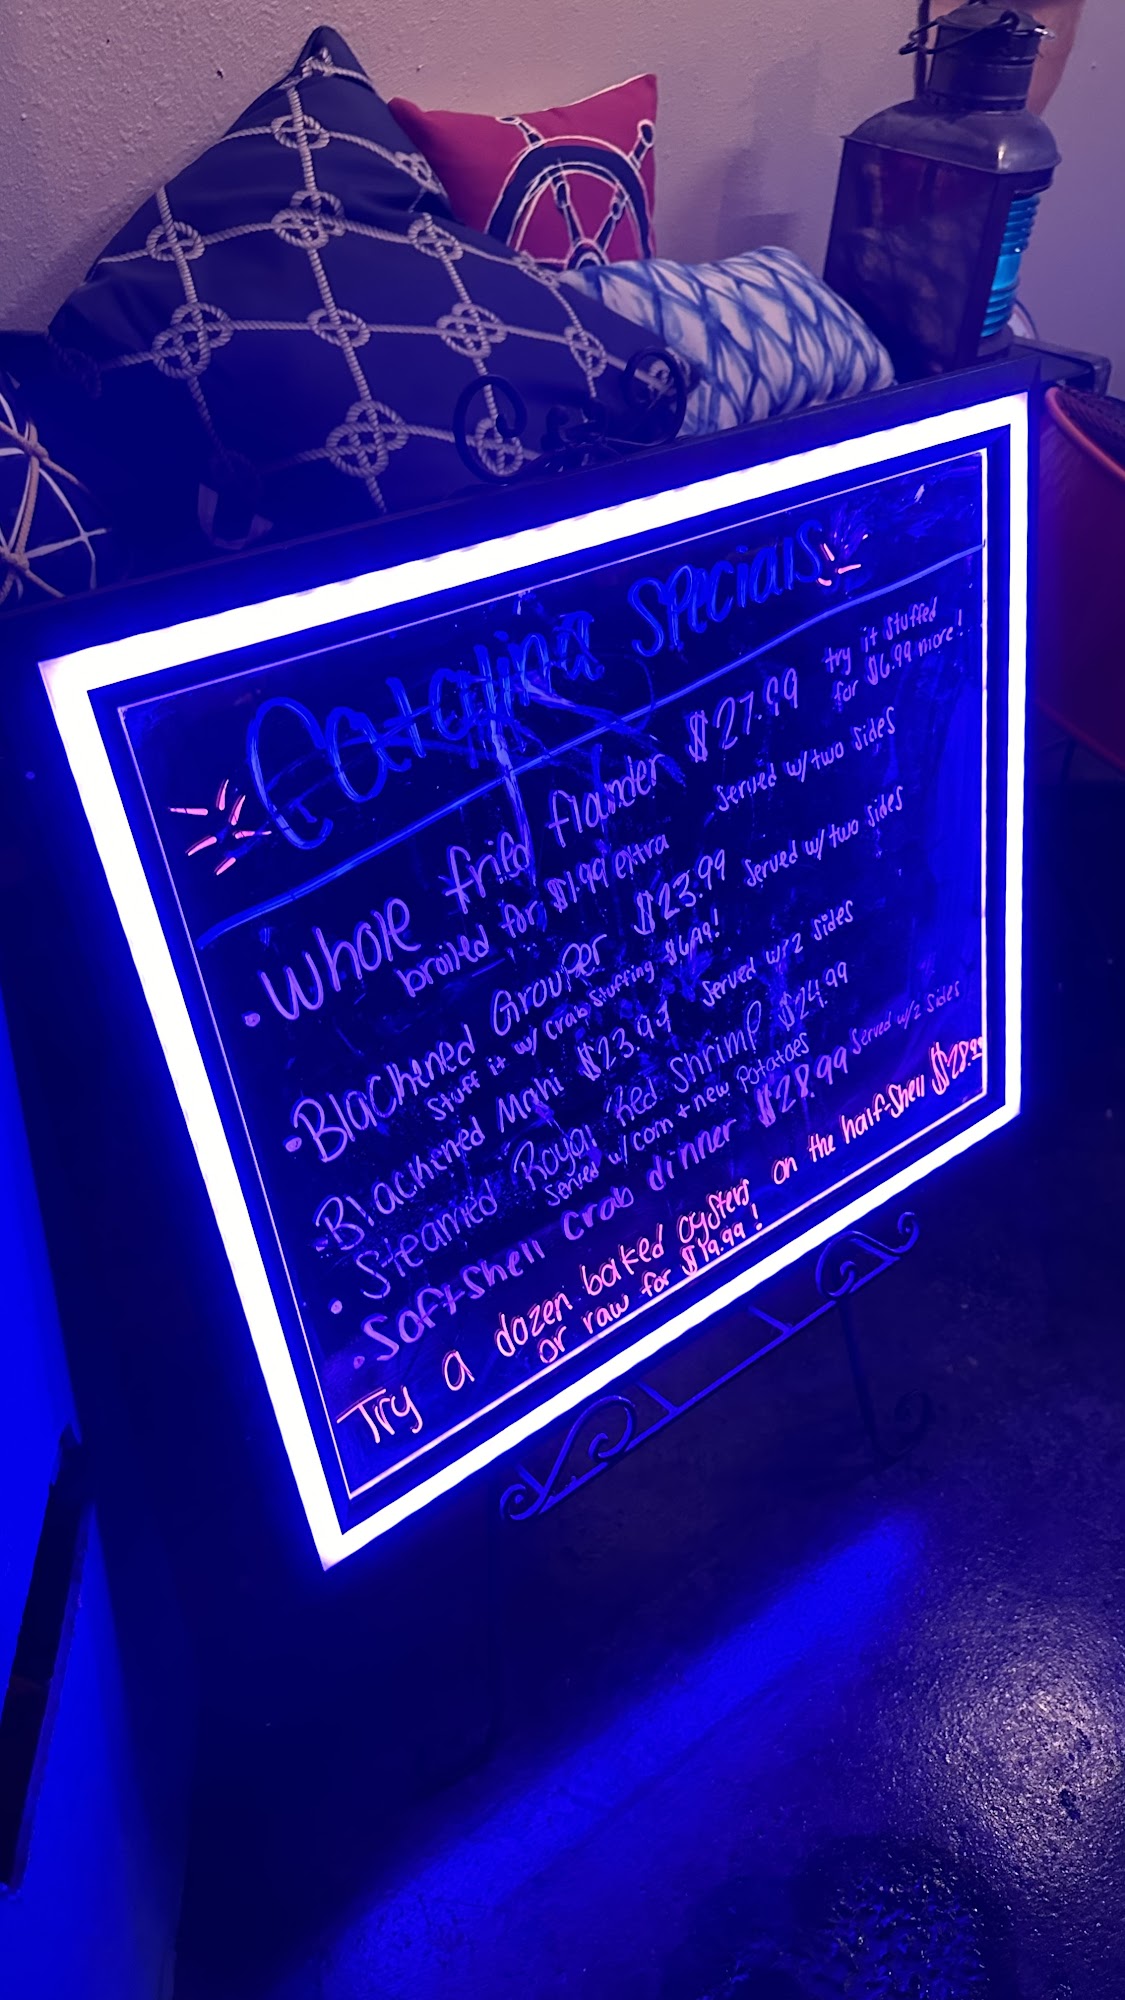 Catalina Specials
• Whole fried flounder $27.99 try it stuffed for $6.99 more!
broiled for $1.99 extra served w/ two sides
• Blackened Grouper $23.99 served w/ two sides
Stuff it w/ crab stuffing $6.99!
• Blackened Mahi $23.99 served w/ 2 sides
• Steamed Royal Red Shrimp $24.99
served w/ corn + new potatoes
• Soft-shell crab dinner $28.99 served w/ 2 sides
Try a dozen baked oysters on the half-shell $28.99
or raw for $19.99!